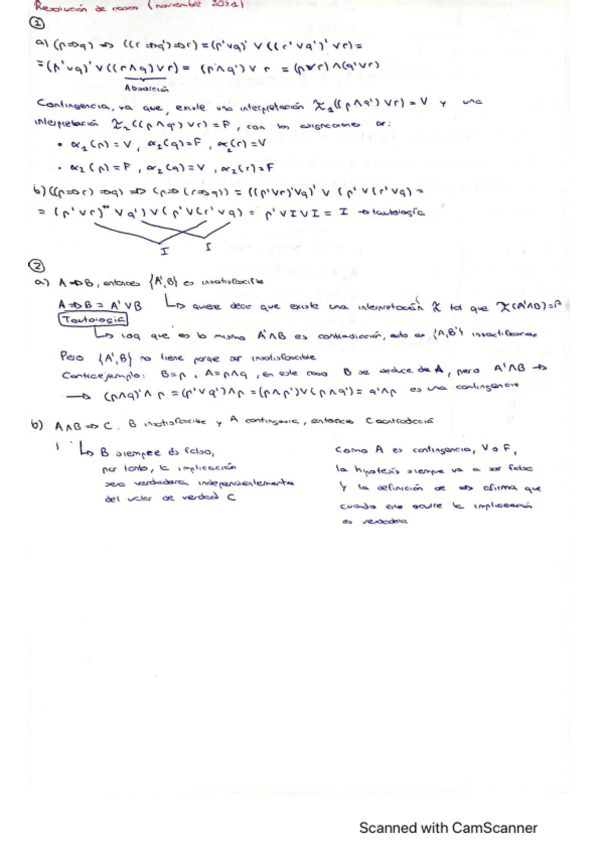 Resolución de casos (noviembre 2021)
①
a) (p⇒q) ⇒ ((r⇒q')⇒r) = (p'vq)' V ((r'vq')' vr) =
= (p'vq)' V ((r∧q)vr) = (p∧q') V r = (pvr)∧(q'vr)
Absorción
Contingencia, ya que, existe una interpretación χ₁((p∧q')vr) = V y una
interpretación χ₂((p∧q')vr) = F, con las asignaciones α:
• α₁(p) = V, α₁(q) = F, α₁(r) = V
• α₂(p) = F, α₂(q) = V, α₂(r) = F
b) ((p⇒r)⇒q) ⇒ (p⇒(r⇒q)) = ((p'vr)'vq)' V (p'v(r'vq) =
= (p'vr)'' v q') V (p'v(r'vq) = p'VIVI = I → tautología
I I
②
a) A⇒B, entonces {A',B} es insatisfacible
A⇒B = A'VB ↳ quiere decir que existe una interpretación χ tal que χ(A'∧B)=F
Tautología
↳ Log que es lo mismo A'∧B es contradicción, esto es {A,B'} insatisfacible
Pero {A',B} no tiene porque ser insatisfacible
Contraejemplo: B=p, A=p∧q, en este caso B se deduce de A, pero A'∧B →
→ (p∧q)'∧p = (p'vq')∧p = (p∧p')V(p∧q') = q'∧p es una contingencia
b) A∧B ⇒ C. B insatisfacible y A contingencia, entonces C contradicció
↳ B siempre es falso,
por tanto, la implicación
sera verdadera independientemente
del valor de verdad C
Como A es contingencia, V o F,
la hipotesis siempre va a ser falsa
y la definición de ⇒ afirma que
cuando esto ocurre la implicación
es verdadera
Scanned with CamScanner